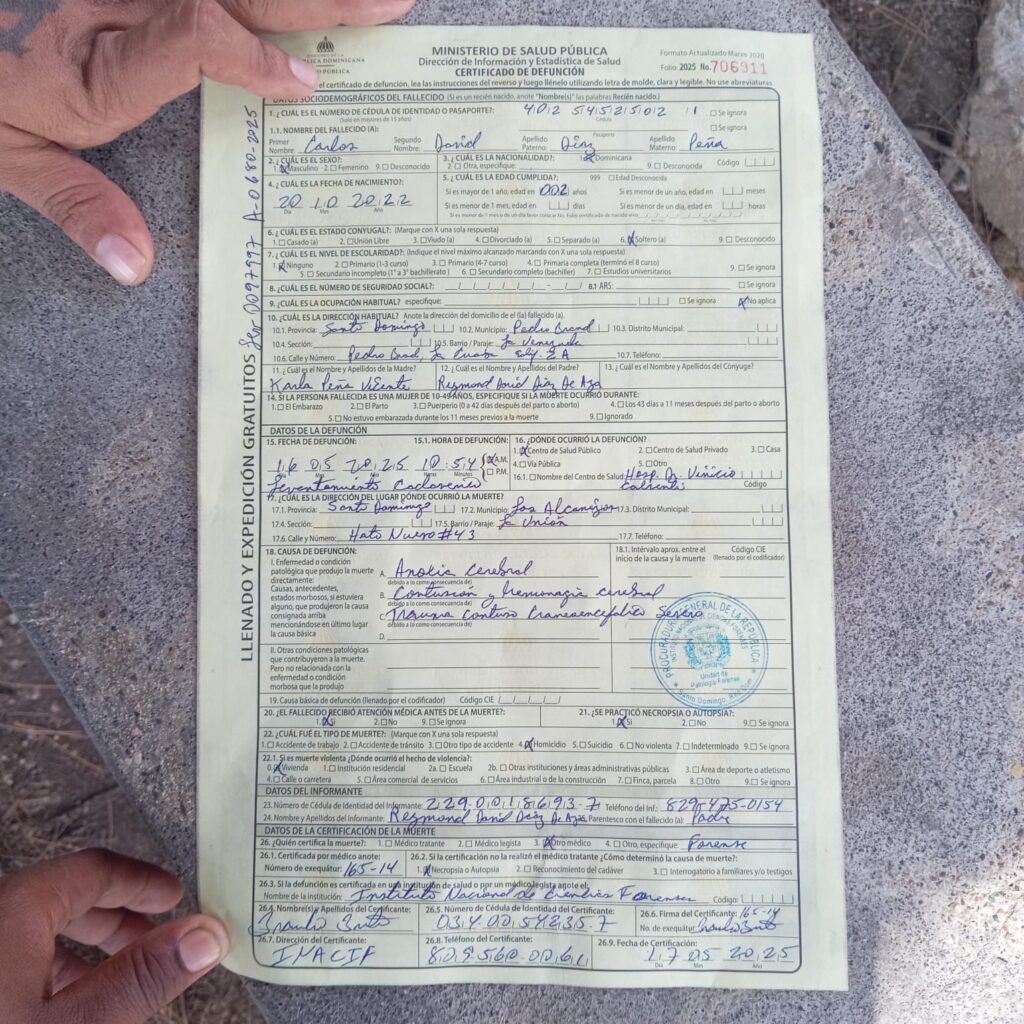 REPÚBLICA DOMINICANA
SALUD PÚBLICA
MINISTERIO DE SALUD PÚBLICA
Dirección de Información y Estadística de Salud
CERTIFICADO DE DEFUNCIÓN
Formato Actualizado Marzo 2020
Folio: 2025 No. 706911
el certificado de defunción, lea las instrucciones del reverso y luego llénelo utilizando letra de molde, clara y legible. No use abreviaturas.
LLENADO Y EXPEDICIÓN GRATUITOS
DATOS SOCIODEMOGRÁFICOS DEL FALLECIDO (Si es un recién nacido, anote "Nombre(s)" las palabras Recién nacido.)
1. ¿CUÁL ES EL NÚMERO DE CÉDULA DE IDENTIDAD O PASAPORTE? Se ignora
(Solo en mayores de 15 años) Cédula
1.1. NOMBRE DEL FALLECIDO (A): Pasaporte Se ignora
Primer Nombre: Carlos Segundo Nombre: David Apellido Paterno: Díaz Apellido Materno: Peña
2. ¿CUÁL ES EL SEXO? 3. ¿CUÁL ES LA NACIONALIDAD? 1. X Dominicana
1. X Masculino 2. Femenino 9. Desconocido 2. Otra, especifique: 9. Desconocida Código
4. ¿CUÁL ES LA FECHA DE NACIMIENTO?: 5. ¿CUÁL ES LA EDAD CUMPLIDA? 999 Edad Desconocida
20 10 2022 Si es mayor de 1 año, edad en 002 años Si es menor de un año, edad en meses
Día Mes Año Si es menor de 1 mes, edad en días Si es menor de un día, edad en horas
6. ¿CUÁL ES EL ESTADO CONYUGAL?: (Marque con X una sola respuesta)
1. Casado (a) 2. Unión Libre 3. Viudo (a) 4. Divorciado (a) 5. Separado (a) 6. X Soltero (a) 9. Desconocido
7. ¿CUÁL ES EL NIVEL DE ESCOLARIDAD?: (Indique el nivel máximo alcanzado marcando con X una sola respuesta)
1. X Ninguno 2. Primario (1-3 curso) 3. Primario (4-7 curso) 4. Primaria completa (terminó el 8 curso)
5. Secundario incompleto (1° a 3° bachillerato) 6. Secundario completo (bachiller) 7. Estudios universitarios 9. Se ignora
8. ¿CUÁL ES EL NÚMERO DE SEGURIDAD SOCIAL?: 8.1 ARS: Se ignora
9. ¿CUÁL ES LA OCUPACIÓN HABITUAL? especifique: Se ignora X No aplica
10. ¿CUÁL ES LA DIRECCIÓN HABITUAL? Anote la dirección del domicilio de el (la) fallecido (a).
10.1. Provincia: Santo Domingo 10.2. Municipio: Pedro Brand 10.3. Distrito Municipal:
10.4. Sección: 10.5. Barrio / Paraje:
10.6. Calle y Número: Pedro Brand, La Cuaba 10.7. Teléfono:
11. ¿Cuál es el Nombre y Apellidos de la Madre? 12. ¿Cuál es el Nombre y Apellidos del Padre? 13. ¿Cuál es el Nombre y Apellidos del Cónyuge?
Karla Peña Vicente Reymond David Díaz De Aza
14. SI LA PERSONA FALLECIDA ES UNA MUJER DE 10-49 AÑOS, ESPECIFIQUE SI LA MUERTE OCURRIÓ DURANTE:
1. El Embarazo 2. El Parto 3. Puerperio (0 a 42 días después del parto o aborto) 4. Los 43 días a 11 meses después del parto o aborto
5. No estuvo embarazada durante los 11 meses previos a la muerte 9. Ignorado
DATOS DE LA DEFUNCIÓN
15. FECHA DE DEFUNCIÓN: 15.1. HORA DE DEFUNCIÓN: 16. ¿DÓNDE OCURRIÓ LA DEFUNCIÓN?
1. X Centro de Salud Público 2. Centro de Salud Privado 3. Casa
16 05 2025 10:54 X A.M. P.M. 4. Vía Pública 5. Otro
Día Mes Año Horas Minutos
16.1. Nombre del Centro de Salud: Hosp. Dr. Vinicio Calventi Código
17. ¿CUÁL ES LA DIRECCIÓN DEL LUGAR DÓNDE OCURRIÓ LA MUERTE?
17.1. Provincia: Santo Domingo 17.2. Municipio: Los Alcarrizos 17.3. Distrito Municipal:
17.4. Sección: 17.5. Barrio / Paraje: La Unión
17.6. Calle y Número: Hato Nuevo #43 17.7. Teléfono:
18. CAUSA DE DEFUNCIÓN: 18.1. Intérvalo aprox. entre el inicio de la causa y la muerte Código CIE (llenado por el codificador)
I. Enfermedad o condición patológica que produjo la muerte directamente:
Causas, antecedentes, estados morbosos, si estuviera alguno, que produjeron la causa consignada arriba mencionándose en último lugar la causa básica
A. Anoxia cerebral
debido a (o como consecuencia de)
B. Contusión y hemorragia cerebral
debido a (o como consecuencia de)
C. Trauma contuso craneoencefálico severo
debido a (o como consecuencia de)
D.
II. Otras condiciones patológicas que contribuyeron a la muerte. Pero no relacionada con la enfermedad o condición morbosa que la produjo
PROCURADURÍA GENERAL DE LA REPÚBLICA
INSTITUTO NACIONAL DE CIENCIAS FORENSES
Unidad de Patología Forense
Santo Domingo, Rep. Dom.
19. Causa básica de defunción (llenado por el codificador) Código CIE
20. ¿EL FALLECIDO RECIBIÓ ATENCIÓN MÉDICA ANTES DE LA MUERTE?: 21. ¿SE PRACTICÓ NECROPSIA O AUTOPSIA?:
1. X Si 2. No 9. Se ignora 1. X Si 2. No 9. Se ignora
22. ¿CUÁL FUÉ EL TIPO DE MUERTE?: (Marque con X una sola respuesta)
1. Accidente de trabajo 2. Accidente de tránsito 3. Otro tipo de accidente 4. X Homicidio 5. Suicidio 6. No violenta 7. Indeterminado 9. Se ignora
22.1. Si es muerte violenta ¿Dónde ocurrió el hecho de violencia?:
0. X Vivienda 1. Institución residencial 2a. Escuela 2b. Otras instituciones y áreas administrativas públicas 3. Área de deporte o atletismo
4. Calle o carretera 5. Área comercial de servicios 6. Área industrial o de la construcción 7. Finca, parcela 8. Otro 9. Se ignora
DATOS DEL INFORMANTE
23. Número de Cédula de Identidad del Informante: 229 0018693-7 Teléfono del Inf.: 829-475-0154
24. Nombre y Apellidos del informante: Reymond David Díaz De Aza Parentesco con el fallecido (a): Padre
DATOS DE LA CERTIFICACIÓN DE LA MUERTE
26. ¿Quién certifica la muerte?: 1. Médico tratante 2. Médico legista 3. X Otro médico 4. Otro, especifique: Forense
26.1. Certificada por médico anote: 26.2. Si la certificación no la realizó el médico tratante ¿Cómo determinó la causa de muerte?:
Número de exequátur: 165-14 1. X Necropsia o Autopsia 2. Reconocimiento del cadáver 3. Interrogatorio a familiares y/o testigos
26.3. Si la defunción es certificada en una institución de salud o por un médico legista anote el:
Nombre de la institución: Instituto Nacional de Ciencias Forenses Código:
26.4. Nombre(s) y Apellidos del Certificante: 26.5. Número de Cédula de Identidad del Certificante: 26.6. Firma del Certificante: 165-14
034 0054235-7 No. de exequátur
26.7. Dirección del Certificante: 26.8. Teléfono del Certificante: 26.9. Fecha de Certificación:
INACIF 809 560-0061 17 05 2025
Día Mes Año